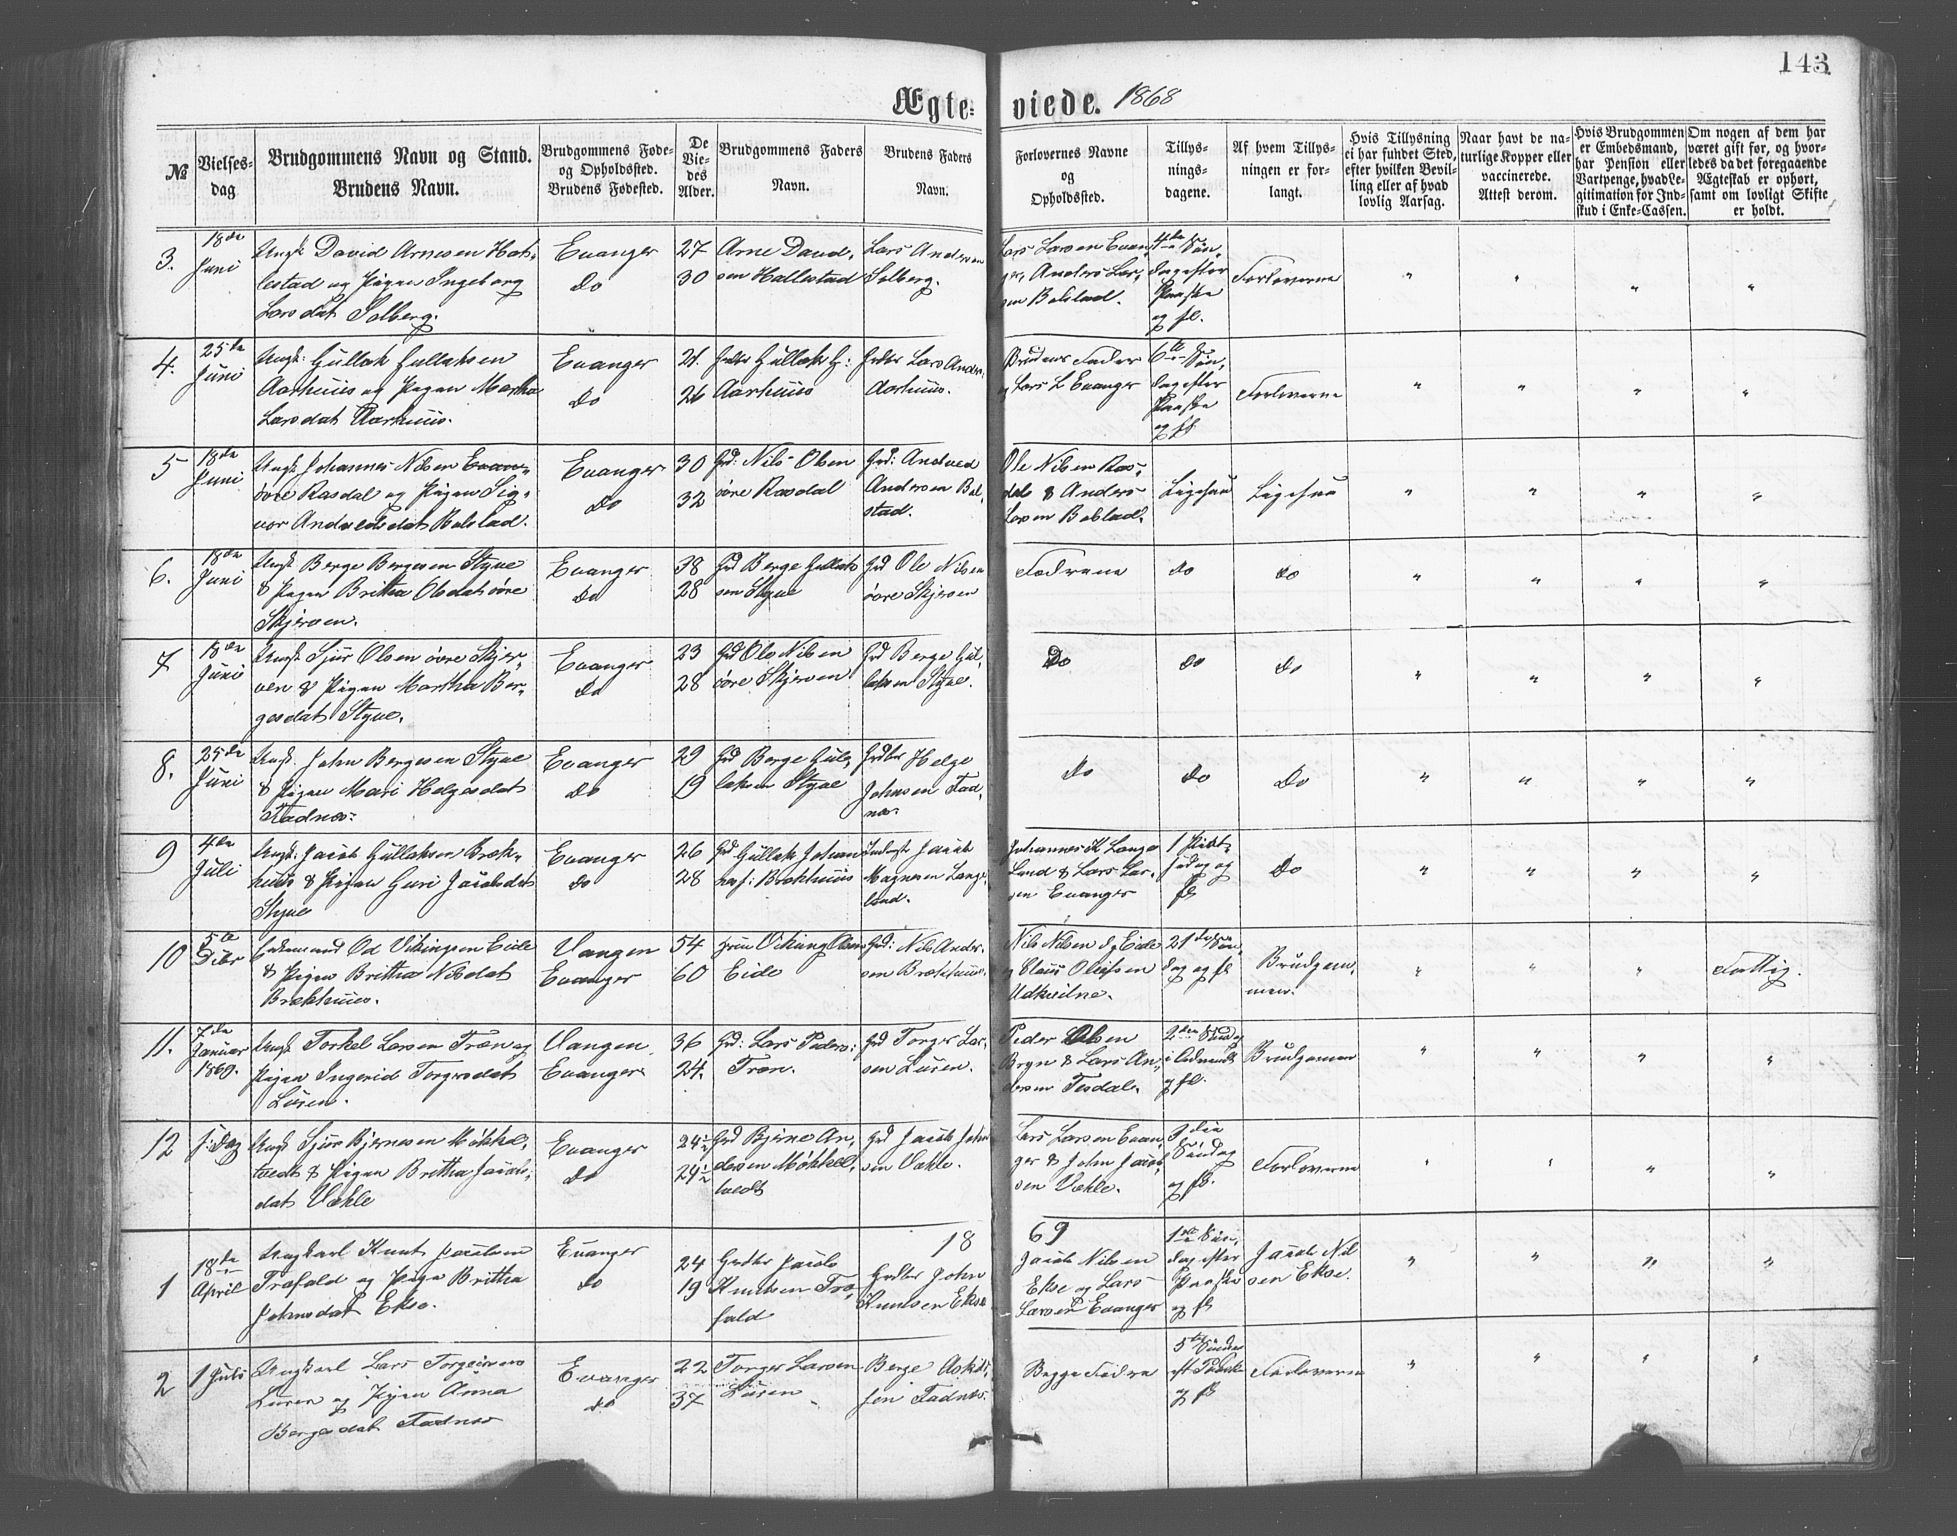 143
Ægte-viede. 1868
№
Vielses-
dag
Brudgommens Navn og Stand.
Brudens Navn.
Brudgommens Føde-
og Opholdssted.
Brudens Fødested.
De
Vie-
des
Alder.
Brudgommens Faders
Navn.
Brudens Faders
Navn.
Forlovernes Navne
og
Opholdssted.
Tillys-
nings-
dagene.
Af hvem Tillys-
ningen er for-
langt.
Hvis Tillysning
ei har fundet Sted,
efter hvilken Bevil-
ling eller af hvad
lovlig Aarsag.
Naar havt de na-
turlige Kopper eller
vaccinerede.
Attest derom.
Hvis Brudgommen
er Embedsmand,
har Pension eller
Vartpenge, hvad Le-
gitimation for Ind-
skud i Enke-Cassen.
Om nogen af dem har
været gift før, og hvor-
ledes da det foregaaende
Ægteskab er ophørt,
samt om lovligt Skifte
er holdt.
3.
18de
Juni
Ungk David Arnesen Hal-
lestad og Pigen Ingeborg
Larsdat Solberg.
Evanger
do
27
30
Arne David-
sen Hallestad
Lars Andersen
Solberg.
Lars Larsen Evan-
ger, Anders Lar-
sen Bolstad.
4de Søn-
dag efter
Paaske
og fl.
Forloverne
" " " "
4.
25de
Juni
Ungk: Gullak Gullaksen
Aarhuus og Pigen Martha
Larsdat Aarhuus.
Evanger
do
21.
26
Gullak G:
Aarhuus
Lars Anders.
Aarhuus.
Brudens Fader
og Lars L Evanger
6te Søn-
dag efter
Paaske
og fl
Forloverne
" " " "
5
18de
Juni
Ungk Johannes Nilsen
øvre Rasdal og Pigen Sig-
vor Andvedsdat Bolstad.
Evanger
do
30
32
Grd: Nils Olsen
øvre Rasdal
Grd: Andved
Andersen Bol-
stad.
Ole Nilsen Ras-
dal & Anders
Larsen Bolstad.
Ligesaa
Ligesaa
" " " "
6.
18de
Juni
Ungk Berge Bergesen Styve
& Pigen Britha Olsdat øvre
Skjerven.
Evanger
do
38
28
Grd Berge Gullak-
sen Styve
Grd Ole Nilsen
øvre Skjerven
Fædrene
do
do
" " " "
7
18de
Juni
Ungk Sjur Olsen øvre Skjer-
ven & Pigen Martha Ber-
gesdat Styve.
Evanger
do
23
28
Grd Ole Nilsen
øvre Skjerven
Grd Berge Gul-
laksen Styve.
Do
do
do
" " " "
8.
25de
Juni
Ungk. John Bergesen Styve
& Pigen Mari Helgesdat
Fadnæs.
Evanger
do
29
19
Grd Berge Gul-
laksen Styve
Grdbr Helge
Johnsen Fad-
næs.
do
do
Do
" " " "
9
4de
Juli
Ungk. Jacob Gullaksen Bræk-
huus & Pigen Guri Jacobsdat
Styve
Evanger
do
26
28
Grd Gullak Johan-
: Brækhuus
Jacob
Magnesen Lange-
land.
Johannes K Lange-
land & Lars Lar-
sen Evanger
1
og
fl
Do
" " " "
10
5te
Dcbr
Enkemand Od Vikingsen Eide
& Pigen Britha Nilsdat
Brækhuus.
Vangen
Evanger
54
60
Viking
Eide
Grd: Nils Ander-
sen Brækhuus.
Nils Nilsen Eide
og Claus Olufsen
Udkvilne.
21de Søn-
dag og fl
Brudgom-
men.
" " "
Fattig.
11.
7de
Januar
1869.
Ungk Torkel Larsen Træn og
Pigen Ingerid Torgersdat
Løsen.
Vangen.
Evanger.
36
24.
Grd: Lars Peders:
Træn.
Grd Torger Lar-
sen Løsen.
Peder Olsen
Bryn & Lars An-
dersen Tesdal.
2den Søndag
i Advendt
og fl.
Brudgommen
" " " "
12
s: Dag
Ungk Sjur Bjørnesen Møkkel-
tvedt & Pigen Britha Jacobs-
dat Væhle
Evanger
do
24½
24½
Grd Bjørne An-
dersen Møkkel-
tvedt
Grd Jacob John-
sen Væhle.
Lars Larsen Evan-
ger & John Jacob-
sen Væhle.
3die
Søndag
og fl.
Forloverne
" " " "
1869
1
18de
April
Ungkarl Knut Jacobsen
Træfald og Pige Britha
Johnsdat Ekse.
Evanger
do
24
19
Grdbr Jacob
Knutsen Træ-
fald
Grdbr John
Knutsen Ekse
Jacob Nilsen
Ekse og Lars
Larsen Evanger
1ste Søn-
dag efter
Paaske
og fl
Jacob Nil-
sen Ekse.
" " " "
2
1 Juli
Ungkarl Lars Torgersen
Løsen og Pigen Anna
Bergesdat Fadnæs
Evanger
do
22
37
Torger Larsen
Løsen
Berge Askild-
sen Fadnæs.
Begge Fædre
5te Søndag
eft Paaske
og fl
Forloverne
" " " "